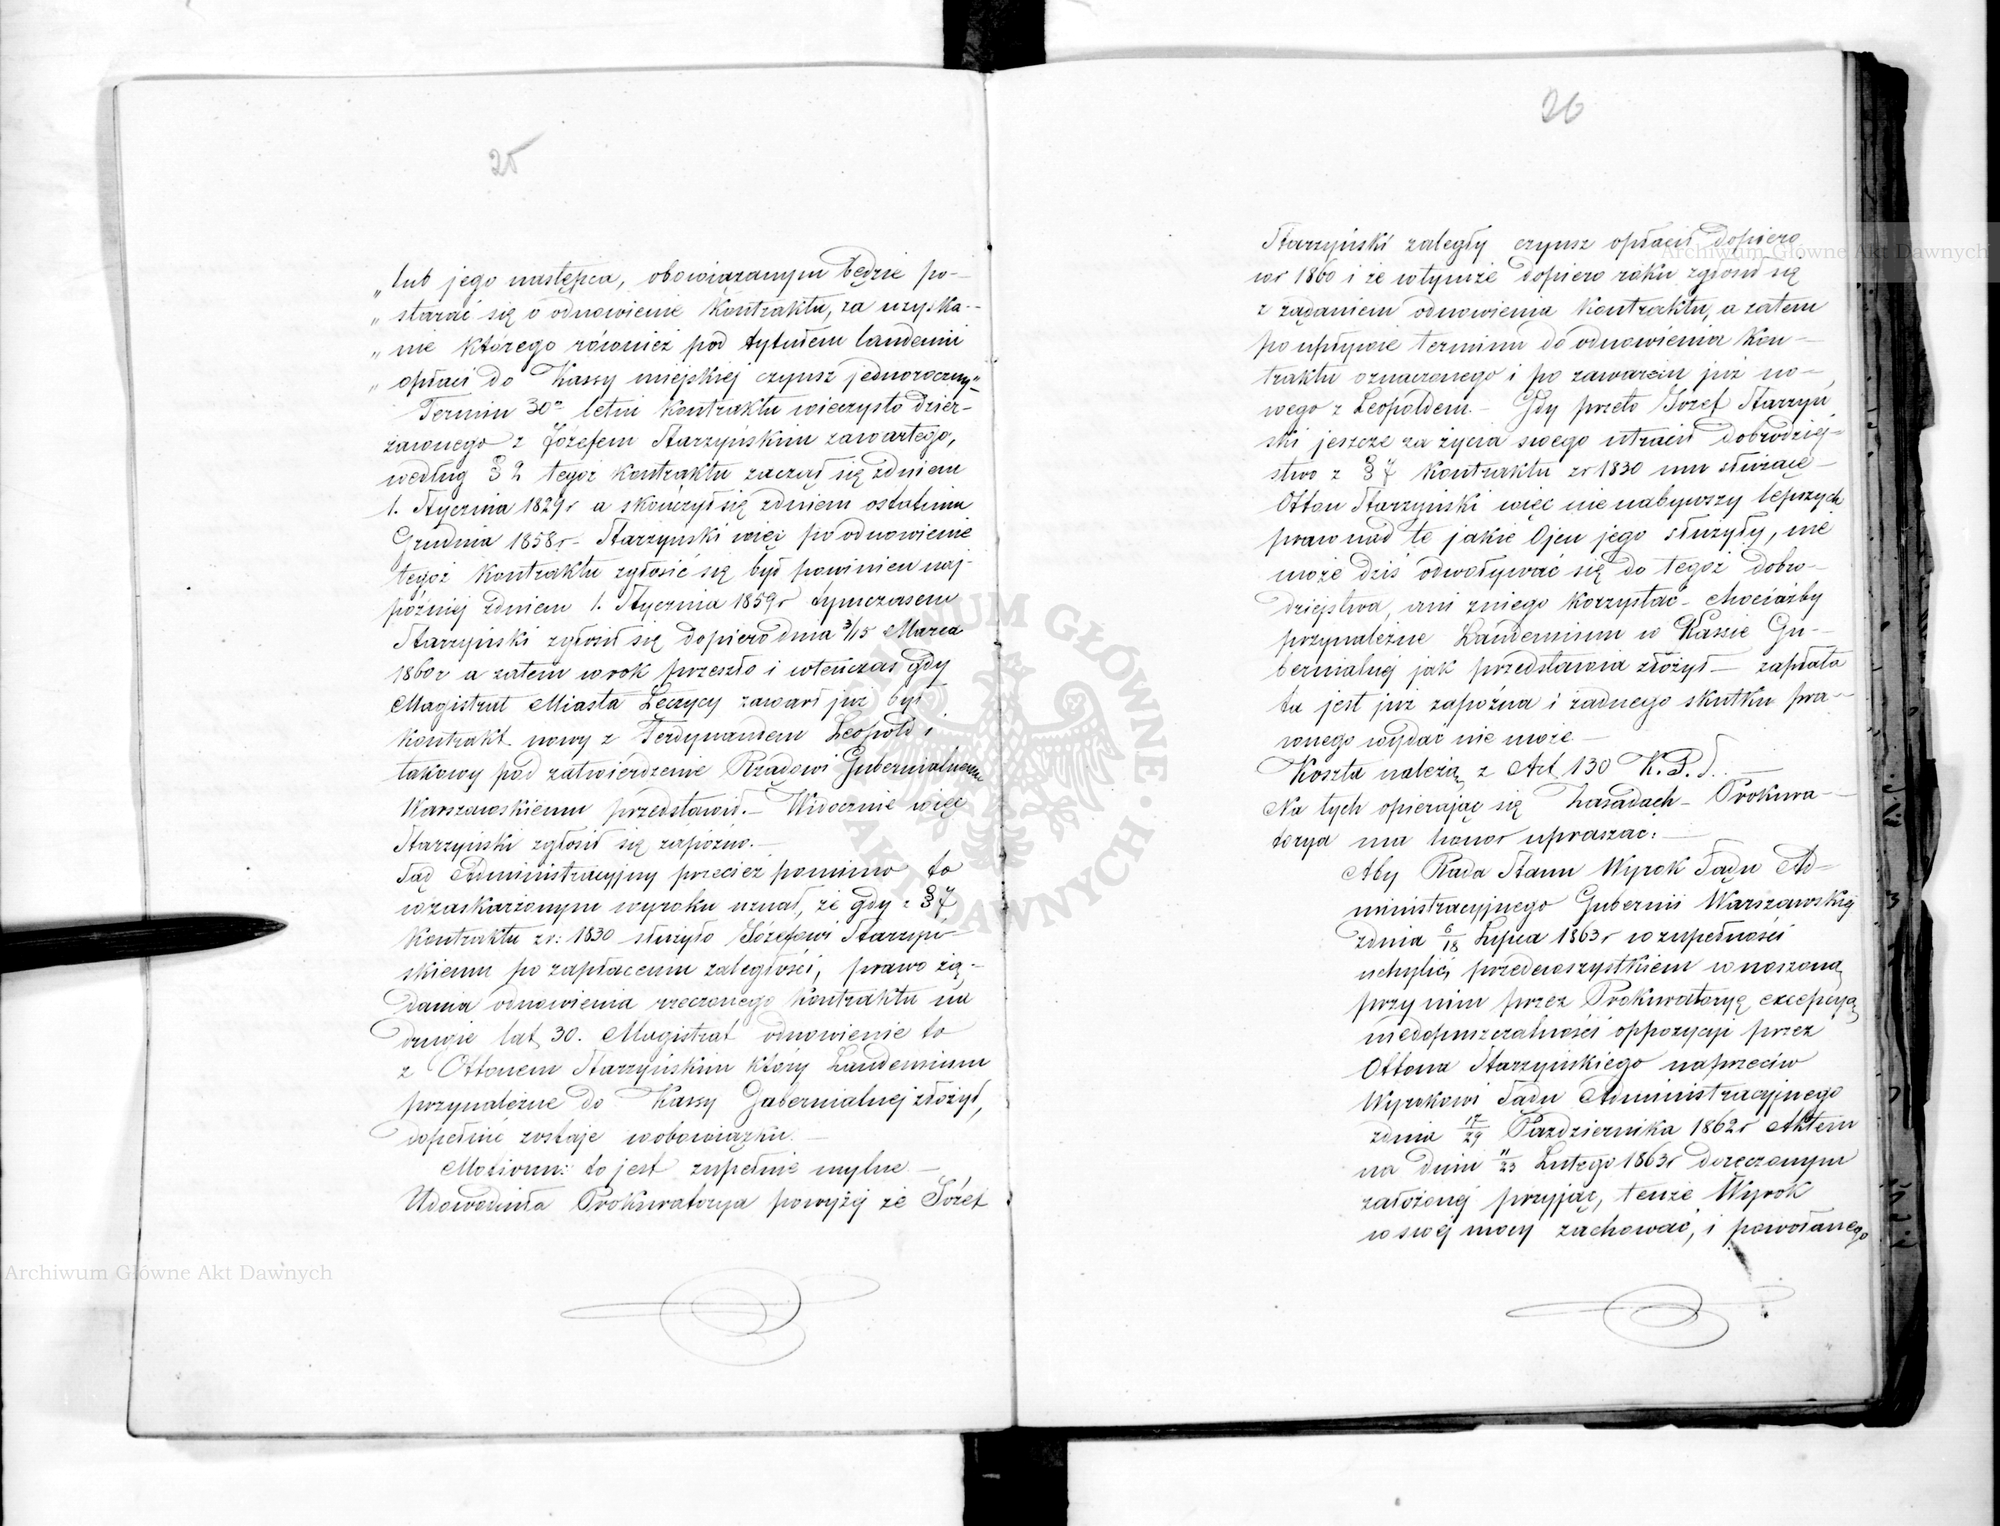 25
„ lub jego następca, obowiązanym będzie po-
„ starać się o odnowienie Kontraktu, za uzyska-
„ nie którego również pod tytułem laudemii
„ opłaci do Kassy miejskiej czynsz jednoroczny"
Termin 30o letni Kontraktu wieczysto dzier-
żawnego z Józefem Starzyńskim zawartego,
według § 2 tegoż Kontraktu zaczął się z dniem
1. Stycznia 1829r a skończył się z dniem ostatnim
Grudnia 1858r - Starzyński więc po odnowienie
tegoż Kontraktu zgłosić się był powinien naj-
później z dniem 1. Stycznia 1859r tymczasem
Starzyński zgłosił się dopiero dnia 3/15 Marca
1860r a zatem w rok przeszło i wtenczas gdy
Magistrat Miasta Łęczycy zawarł już był
Kontrakt nowy z Ferdynandem Leopold i
takowy pod zatwierdzenie Rządowi Gubernialnemu
Warszawskiemu przedstawił. - Widocznie więc
Starzyński zgłosił się zapóźno. -
Sąd Administracyjny przecież pomimo to
w zaskarżonym wyroku uznał, że gdy z § 7
Kontraktu z r: 1830 służyło Józefowi Starzyń-
skiemu po zapłaceniu zaległości, prawo żą-
dania odnowienia rzeczonego Kontraktu na
drugie lat 30. Magistrat odnowienie to
z Ottonem Starzyńskim który Laudemium
przynależne do Kassy Gubernialnej złożył,
dopełnić zostaje w obowiązku. -
Motivum: to jest zupełnie mylne -
Udowodniła Prokuratorya powyżej że Józef
26
Starzyński zaległy czynsz opłacił dopiero
w r 1860 i że w tymże dopiero roku zgłosił się
z żądaniem odnowienia Kontraktu, a zatem
po upływie terminu do odnowienia Kon-
traktu oznaczonego i po zawarciu już no-
wego z Leopoldem. - Gdy przeto Józef Starzyń
ski jeszcze za życia swego utracił dobrodziej-
stwo z § 7 Kontraktu z r 1830 mu służące -
Otton Starzyński więc nie nabywszy lepszych
praw nad te jakie Ojcu jego służyły, nie
może dziś odwoływać się do tegoż dobro-
dziejstwa, ani z niego korzystać - chociażby
przynależne Laudemium w Kassie Gu-
bernialnej jak przedstawia złożył - zapłata
ta jest już zapóźna i żadnego skutku pra-
wnego wydać nie może -
Koszta należą z Art 130 K. P. S. -
Na tych opierając się zasadach - Prokura-
torya ma honor upraszać: -
Aby Rada Stanu Wyrok Sądu Ad-
ministracyjnego Gubernii Warszawskiej
z dnia 6/18 Lipca 1863r w zupełności
uchylić, przedewszystkiem wnoszoną
przy nim przez Prokuratoryę excepcyą
niedopuszczalności oppozycyi przez
Ottona Starzyńskiego naprzeciw
Wyrokowi Sądu Administracyjnego
z dnia 17/29 Października 1862r Aktem
na dniu 11/23 Lutego 1863r doręczonym
założonej przyjąć, tenże Wyrok
w swej mocy zachować, i powołanego
Archiwum Główne Akt Dawnych
Archiwum Główne Akt Dawnych
ARCHIWUM GŁÓWNE AKT DAWNYCH